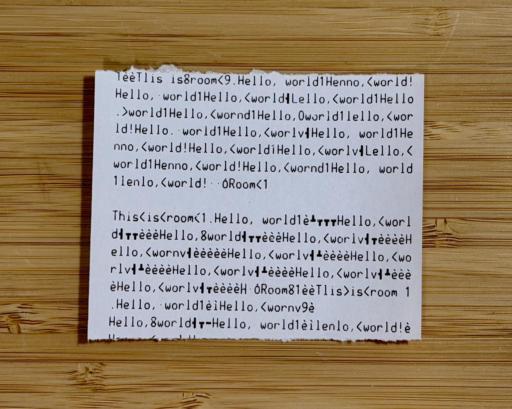 1èèTlis is8room<9.Hello, world1Henno,<world!
Hello, world1Hello,<world┫Lello,<world1Hello
.>world1Hello,<wornd1Hello,0world1lello,<wor
ld!Hello. world1Hello,<worlv┫Hello, world1He
nno,<world!Hello,<worldìHello,<worlv┫Lello,<
world1Henno,<world!Hello,<wornd1Hello, world
1lenlo,<world! · óRoom<1

This<is<room<1.Hello, world1è┻┳┳┳Hello,<worl
d┫┳┳èèèHello,8world┫┳┳èèèHello,<worlv┫┳èèèèH
ello,<wornv┫èèèèèèHello,<worlv┫┻èèèèHello,<wo
rlv┫┻èèèèHello,<worlv┫┻èèèèHello,<worlv┫┻èèè
èHello,<worlv┫┳èèèèH óRoom81èèTlis>is<room 1
.Hello, world1èìHello,<wornv9è
Hello,8world┫┳━Hello, world1èìlenlo,<world!è